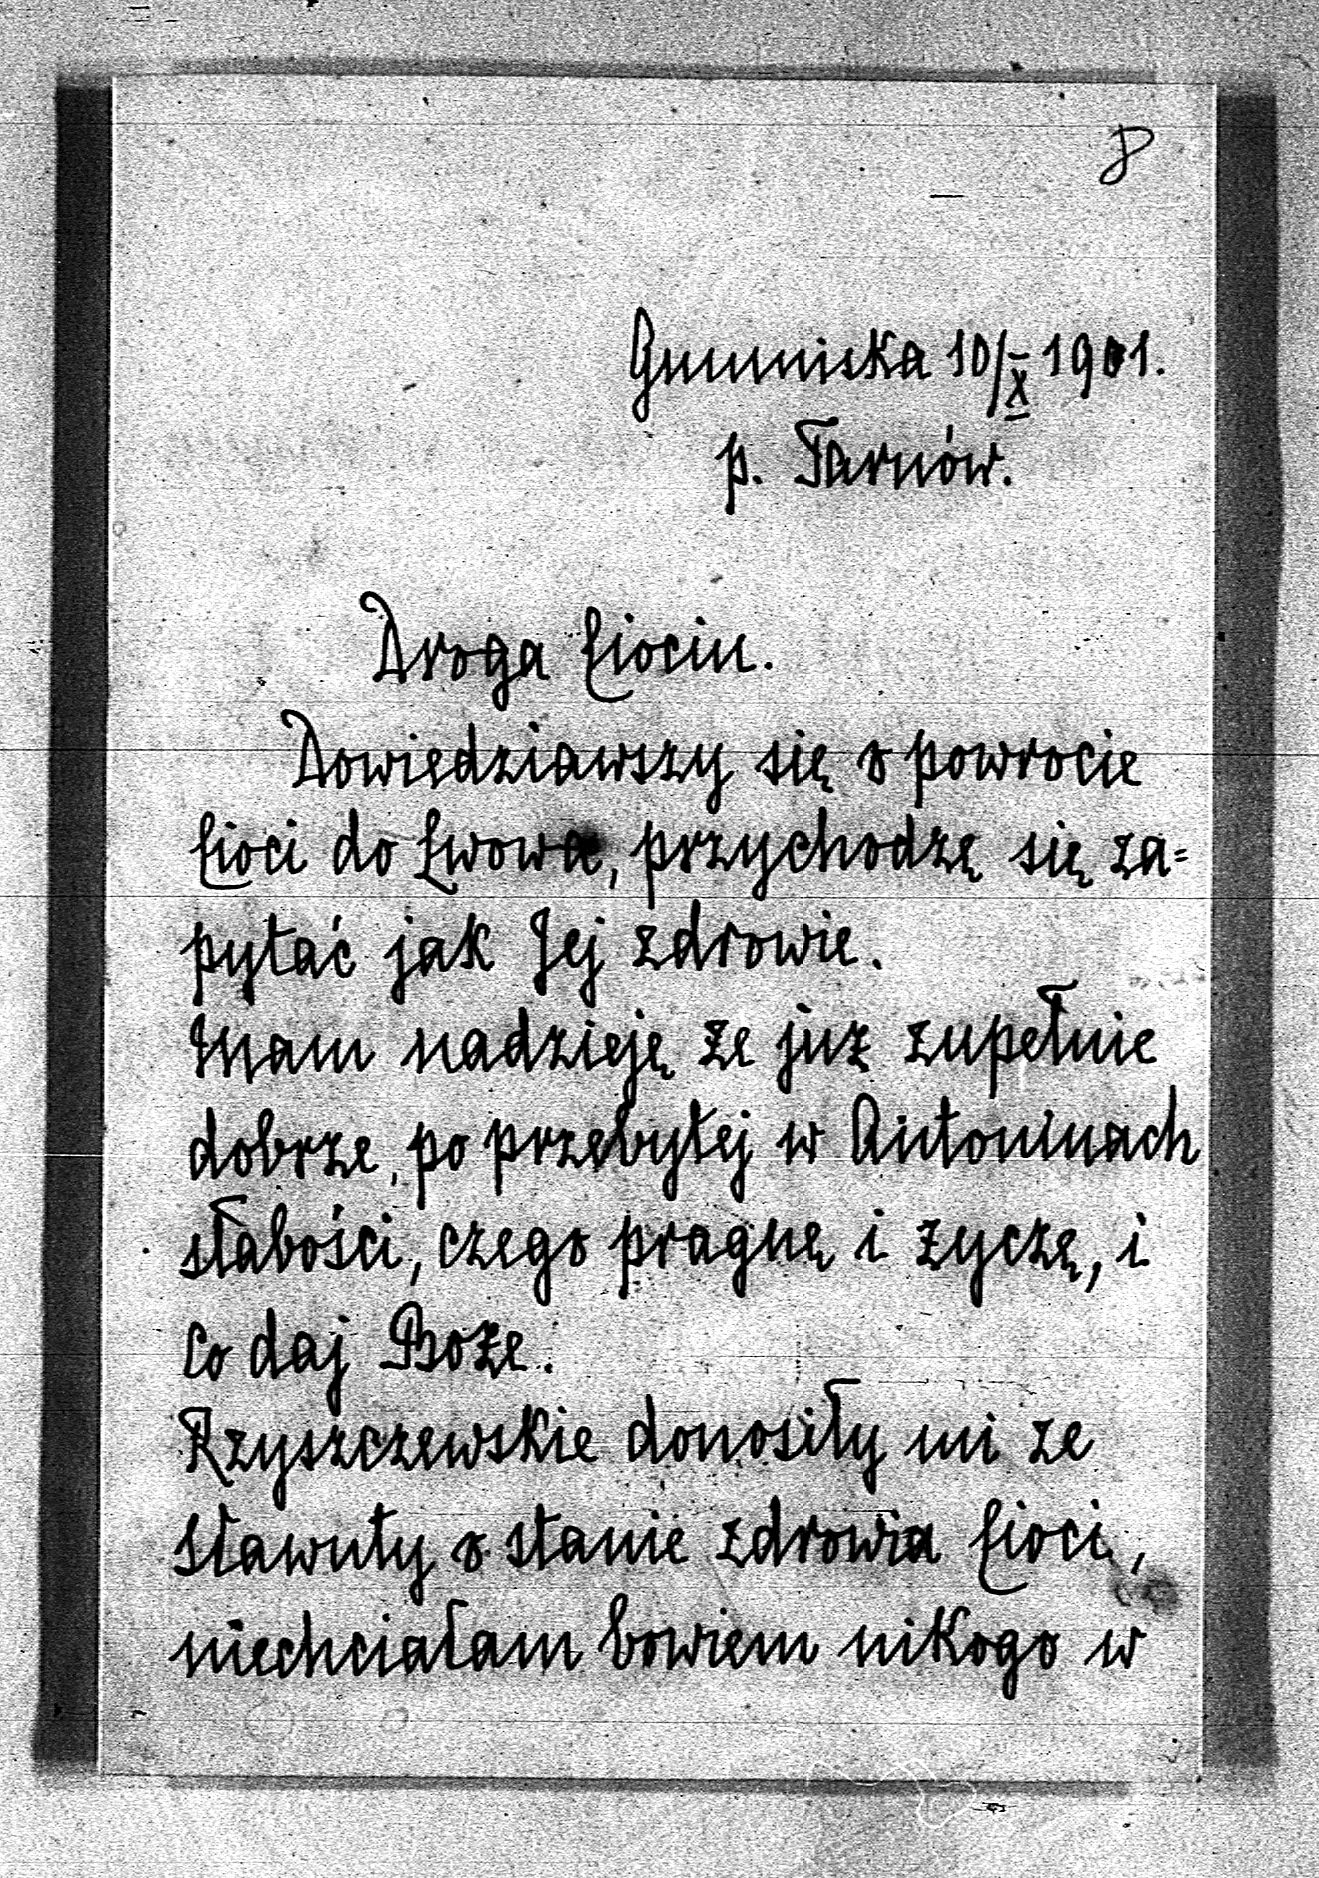 8
Gumniska 10/X 1901.
p. Tarnów.
Droga Ciociu.
Dowiedziawszy się o powrocie
Cioci do Lwowa, przychodzę się za=
pytać jak Jej zdrowie.
Mam nadzieję że już zupełnie
dobrze, po przebytej w Antoninach
słabości, czego pragnę i życzę, i
co daj Boże.
Rzyszczewskie donosiły mi ze
Sławuty o stanie zdrowia Cioci,
niechciałam bowiem nikogo w